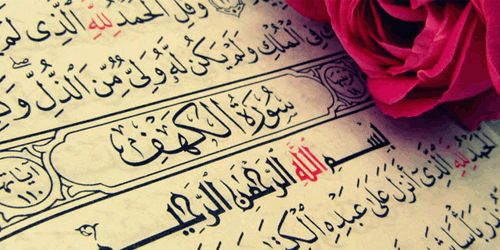 وَقُلِ الْحَمْدُ لِلَّهِ الَّذِي لَمْ
فِي الْمُلْكِ وَلَمْ يَكُن لَّهُ وَلِيٌّ مِّنَ الذُّلِّ
سُورَةُ الْكَهْفِ
آياتها ١١٠
بِسْمِ اللَّهِ الرَّحْمَٰنِ الرَّحِيمِ
الْحَمْدُ لِلَّهِ الَّذِي أَنزَلَ عَلَىٰ عَبْدِهِ
بَأْسًا